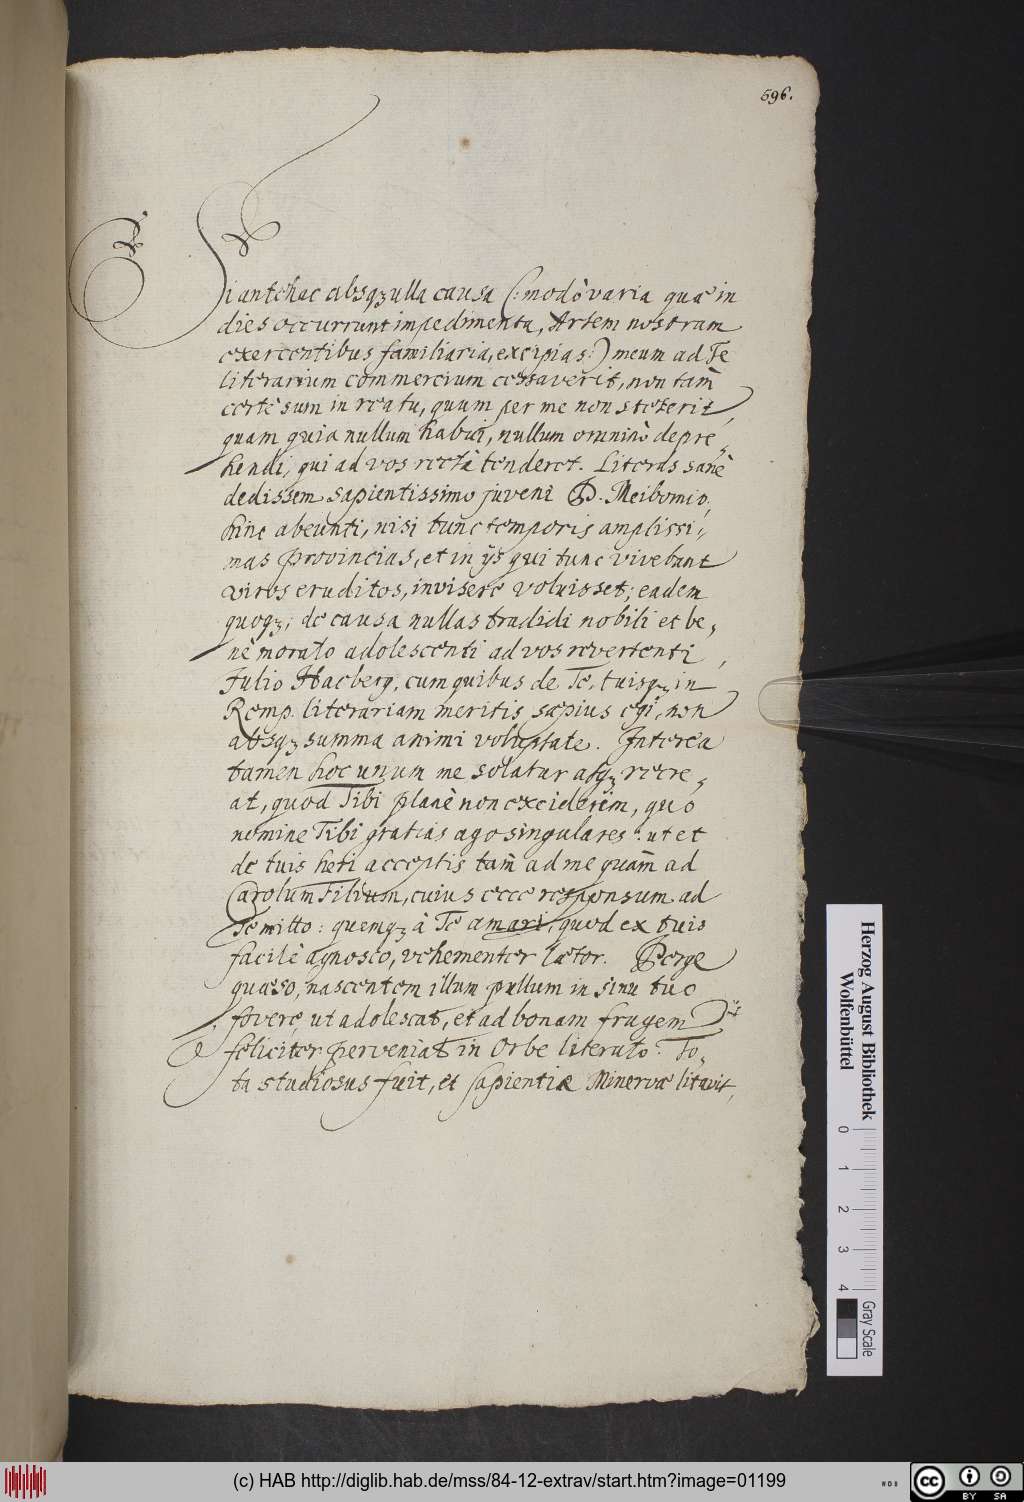 596.
Si antehac absqꝫ ulla causa (: modò varia quæ in
dies occurrunt impedimenta, Artem nostram
exercentibus familiaria, excipias :) meum ad Te
literarium commercium cessaverit, non tam̃
certè sum in reatu, quum per me non steterit,
quam quia nullum habui, nullum omninò depre„
hendi, qui ad vos rectà tenderet. Literas sanè
dedissem sapientissimo juveni D. Meibomio,
hinc abeunti, nisi tunc temporis amplissi„
mas provincias, et in ijs qui tunc vivebant
viros eruditos, invisere voluisset; eadem
quoqꝫ; de causa nullas tradidi nobili et be„
nè morato adolescenti ad vos revertenti,
Julio Hacberg, cum quibus de Te, tuisqꝫ in
Remp. literariam meritis sæpius egi, non
absqꝫ summa animi voluptate. Interea
tamen hoc unum me solatur atqꝫ recre„
at, quod Tibi planè non exciderim, quo
nomine Tibi gratias ago singulares: ut et
de tuis heri acceptis tam̃ ad me quam̃ ad
Carolum Filium, cuius ecce responsum ad
Te mitto: quemqꝫ à Te amari, quod ex tuis
facilè agnosco, vehementer lætor. Perge
quæso, nascentem illum pullum in sinu tuo
fovere, ut adolescat, et ad bonam frugem
feliciter perveniat in Orbe literato. To„
ta studiosus fuit, et sapientiæ Minervæ litavit,
Herzog August Bibliothek
Wolfenbüttel
0 1 2 3 4
Gray Scale
(c) HAB http://diglib.hab.de/mss/84-12-extrav/start.htm?image=01199
cc BY SA